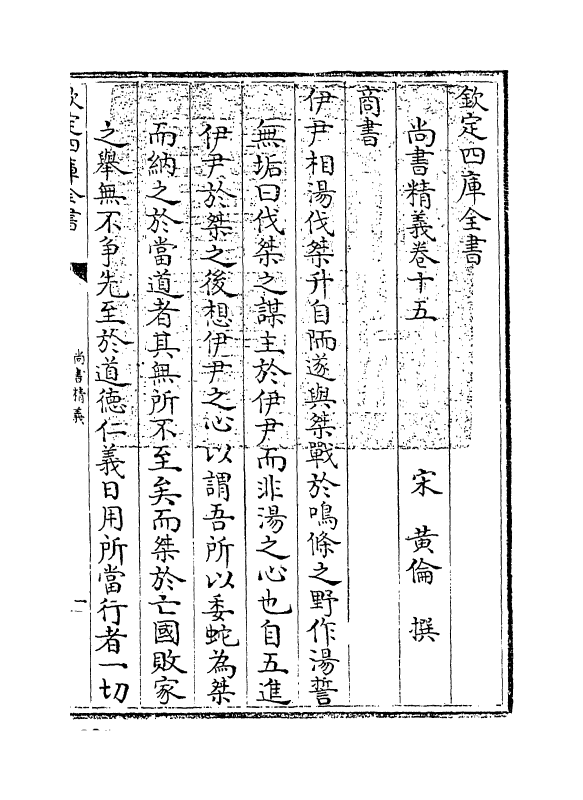 欽定四庫全書
尚書精義卷十五
宋 黃倫 撰
商書
伊尹相湯伐桀升自陑遂與桀戰於鳴條之野作湯誓
無垢曰伐桀之謀主於伊尹而非湯之心也自五進
伊尹於桀之後想伊尹之心以謂吾所以委蛇為桀
而納之於當道者其無所不至矣而桀於亡國敗家
之舉無不争先至於道德仁義日用所當行者一切
欽定四庫全書
尚書精義
一